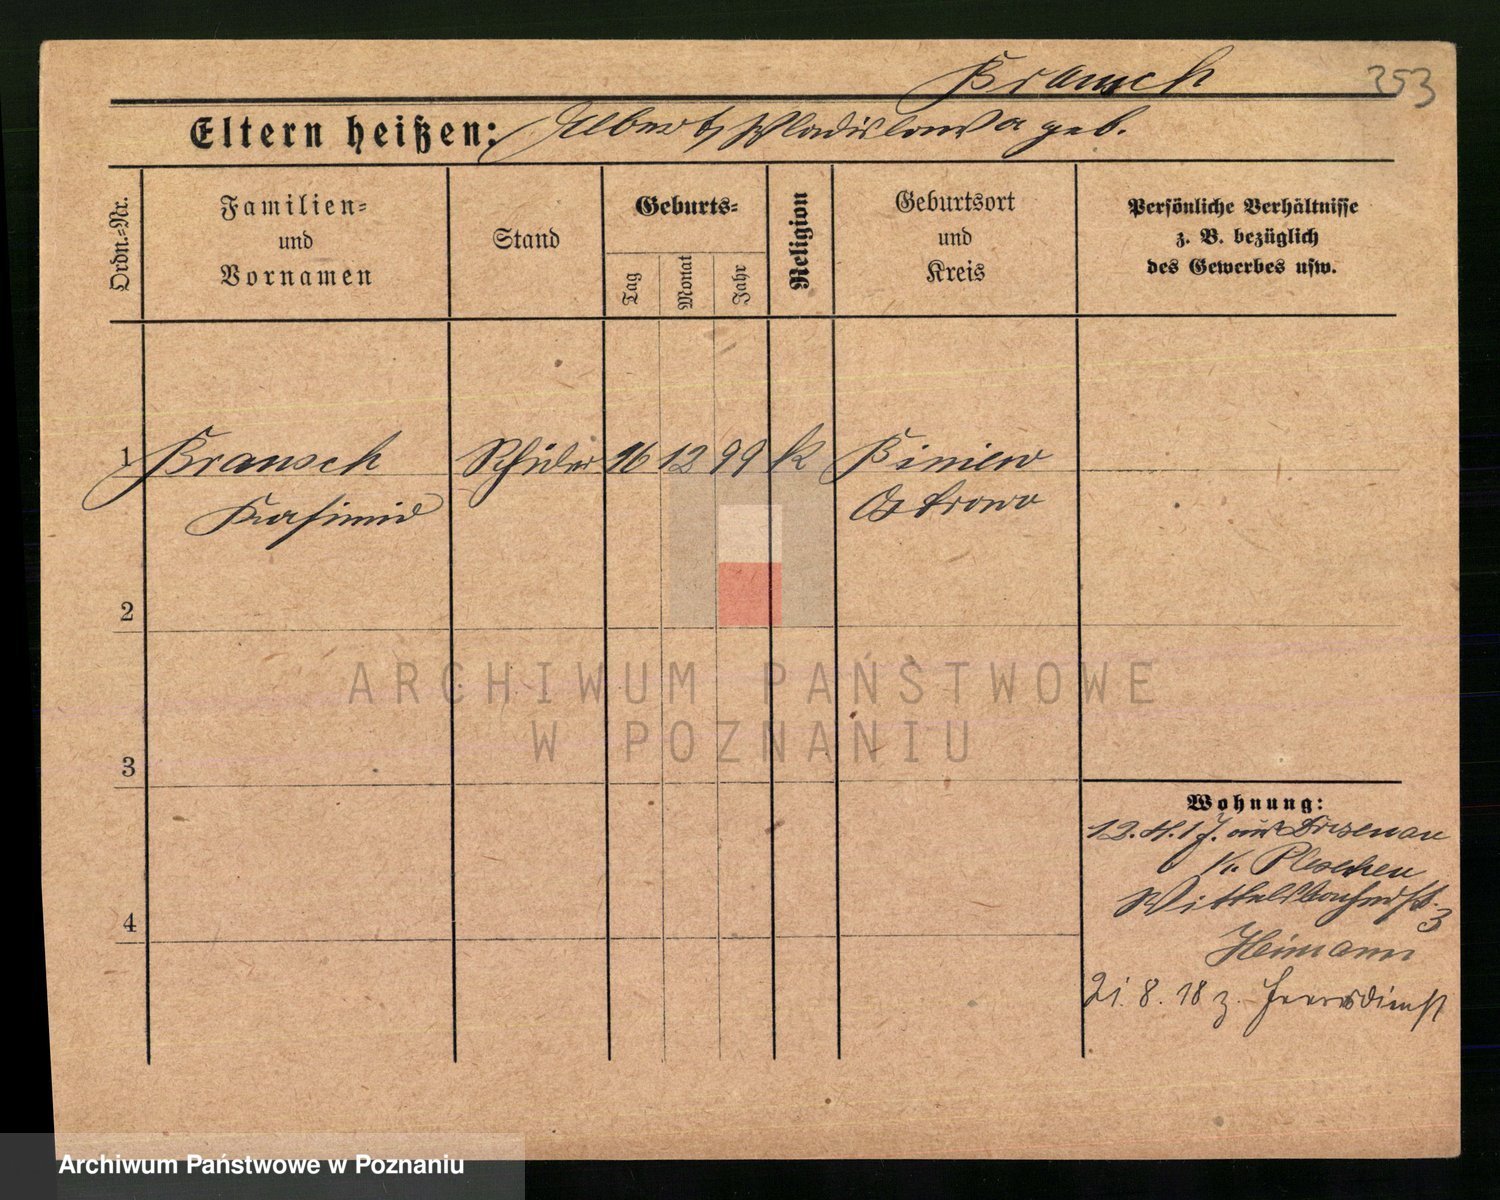 Brausch
353
Eltern heißen: Albert, Wladislawa geb.
Ordn.-Nr.
Familien-
und
Vornamen
Stand
Geburts-
Tag
Monat
Jahr
Religion
Geburtsort
und
Kreis
Persönliche Verhältnisse
z. B. bezüglich
des Gewerbes usw.
1 Brausch Schüler 16 12 99 k Biniew
Kasimir Ostrowo
2
3
4
Wohnung:
12.4.17. aus
Kr. Pleschen
Wittelsbacherstr. 3
Heimann
21. 8. 18 z. Heeresdienst
ARCHIWUM PAŃSTWOWE
W POZNANIU
Archiwum Państwowe w Poznaniu